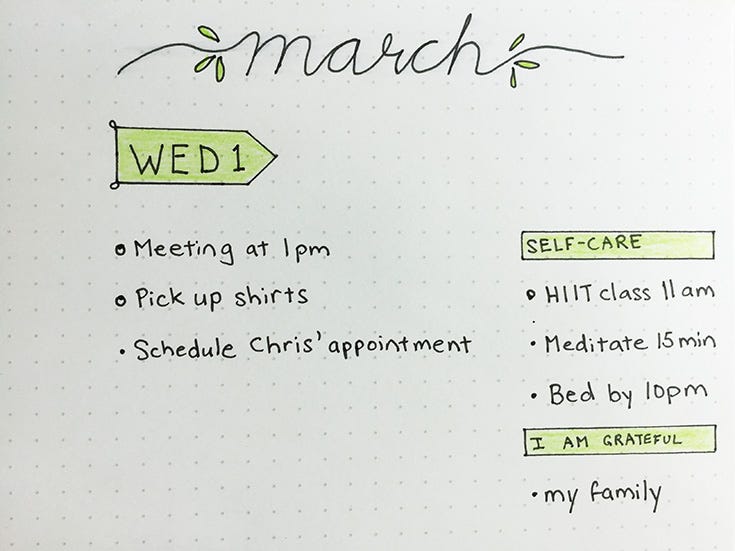 march
WED 1
• Meeting at 1pm
• Pick up shirts
• Schedule Chris' appointment
SELF-CARE
• HIIT class 11am
• Meditate 15min
• Bed by 10pm
I AM GRATEFUL
• my family